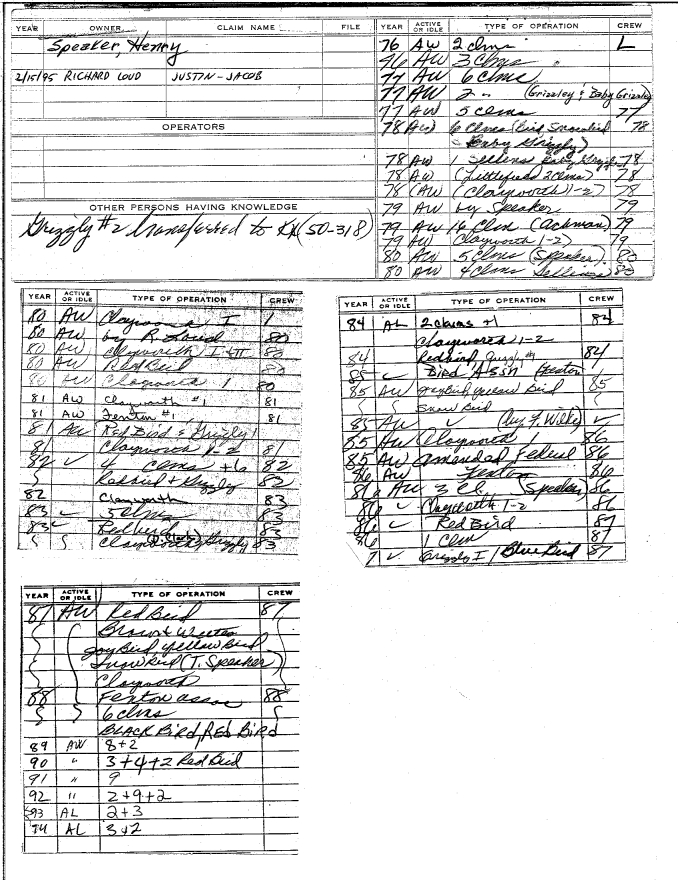 YEAR OWNER CLAIM NAME FILE
Speaker, Henry
2/15/95 RICHARD LOUD JUSTIN-JACOB
OPERATORS
OTHER PERSONS HAVING KNOWLEDGE
Grizzly #2 transferred to KX (50-318)
YEAR ACTIVE OR IDLE TYPE OF OPERATION CREW
76 AW 2 clms L
76 AW 3 Clms "
77 AW 6 clms
77 AW 2 " (Grizzley & Baby Grizzley
77 AW 5 clms 77
78 AW 6 Clms (Bird, Snowbird 78
& Baby Grizzly)
78 AW 1 Sellens Baby Grizzly 78
78 AW (Littlefield 2 Clms) 78
78 (AW (Clayworth 1-2) 78
79 AW by Speaker 79
79 AW 16 Clm (Ackman) 79
79 AW Clayworth 1-2) 79
80 AW 5 Clms (Speaker) 80
80 AW 4 Clms Sellens 80
YEAR ACTIVE OR IDLE TYPE OF OPERATION CREW
80 AW Clayworth I 1
80 AW by R. Loud 80
80 AW Clayworth I + II 80
80 AW Red Bird 80
80 AW Clayworth 1 80
81 AW Clayworth #1 81
81 AW Fenton #1 81
81 AW Red Bird & Grizzly 1
81 Clayworth 1-2 81
82 ✓ 4 clms + 6 82
Redbird + Grizzly 82
82 Clayworth 83
83 ✓ 3 clms 83
83 ✓ Redbird 83
Clayworth Grizzly 83
YEAR ACTIVE OR IDLE TYPE OF OPERATION CREW
84 AL 2 claims +1 84
Clayworth 1-2
84 Redbird, Grizzly #1 84
85 ✓ Bird Assn Fenton
85 AW Jay Bird, Yellow Bird 85
Snow Bird
85 AW ✓ ✓
85 AW Clayworth 1 86
85 AW Amended Federal 86
86 AW Fenton 86
86 AW 3 Cl (Speaker) 86
86 ✓ Clayworth 1-2 86
86 ✓ Red Bird 87
86 1 Clm 87
7 ✓ Grizzly I / Blue Bird 87
YEAR ACTIVE OR IDLE TYPE OF OPERATION CREW
87 AW Red Bird 87
Brown &
Jay Bird, Yellow Bird
Snow Bird (T. Speaker)
Clayworth
88 Fenton assoc 88
6 clms
BLACK BIRD, RED BIRD
89 AW 8+2
90 " 3+4+2 Red Bird
91 " 9
92 " 2+9+2
93 AL 2+3
94 AL 3+2